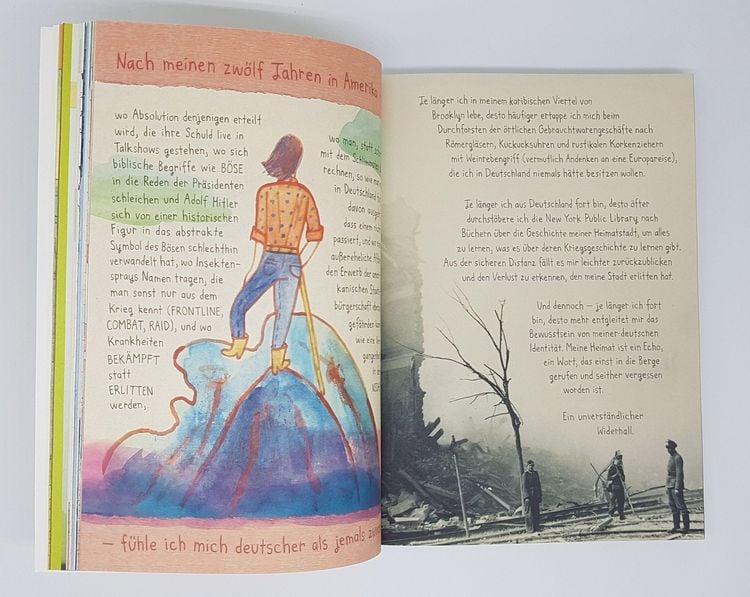 Nach meinen zwölf Jahren in Amerika
wo Absolution denjenigen erteilt
wird, die ihre Schuld live in
Talkshows gestehen, wo sich
biblische Begriffe wie BÖSE
in die Reden der Präsidenten
schleichen und Adolf Hitler
sich von einer historischen
Figur in das abstrakte
Symbol des Bösen schlechthin
verwandelt hat, wo Insekten-
sprays Namen tragen, die
man sonst nur aus dem
Krieg kennt (FRONTLINE,
COMBAT, RAID), und wo
Krankheiten
BEKÄMPFT
statt
ERLITTEN
werden,
wo man, statt
mit dem
rechnen, so wie
in Deutschland
davon
dass einem
passiert, und wo
außereheliche
den Erwerb der
kanischen
bürgerschaft
gefährden
wie eine
– fühle ich mich deutscher als jemals
Je länger ich in meinem karibischen Viertel von
Brooklyn lebe, desto häufiger ertappe ich mich beim
Durchforsten der örtlichen Gebrauchtwarengeschäfte nach
Römergläsern, Kuckucksuhren und rustikalen Korkenziehern
mit Weinrebengriff (vermutlich Andenken an eine Europareise),
die ich in Deutschland niemals hätte besitzen wollen.
Je länger ich aus Deutschland fort bin, desto öfter
durchstöbere ich die New York Public Library nach
Büchern über die Geschichte meiner Heimatstadt, um alles
zu lernen, was es über deren Kriegsgeschichte zu lernen gibt.
Aus der sicheren Distanz fällt es mir leichter zurückzublicken
und den Verlust zu erkennen, den meine Stadt erlitten hat.
Und dennoch – je länger ich fort
bin, desto mehr entgleitet mir das
Bewusstsein von meiner deutschen
Identität. Meine Heimat ist ein Echo,
ein Wort, das einst in die Berge
gerufen und seither vergessen
worden ist.
Ein unverständlicher
Widerhall.